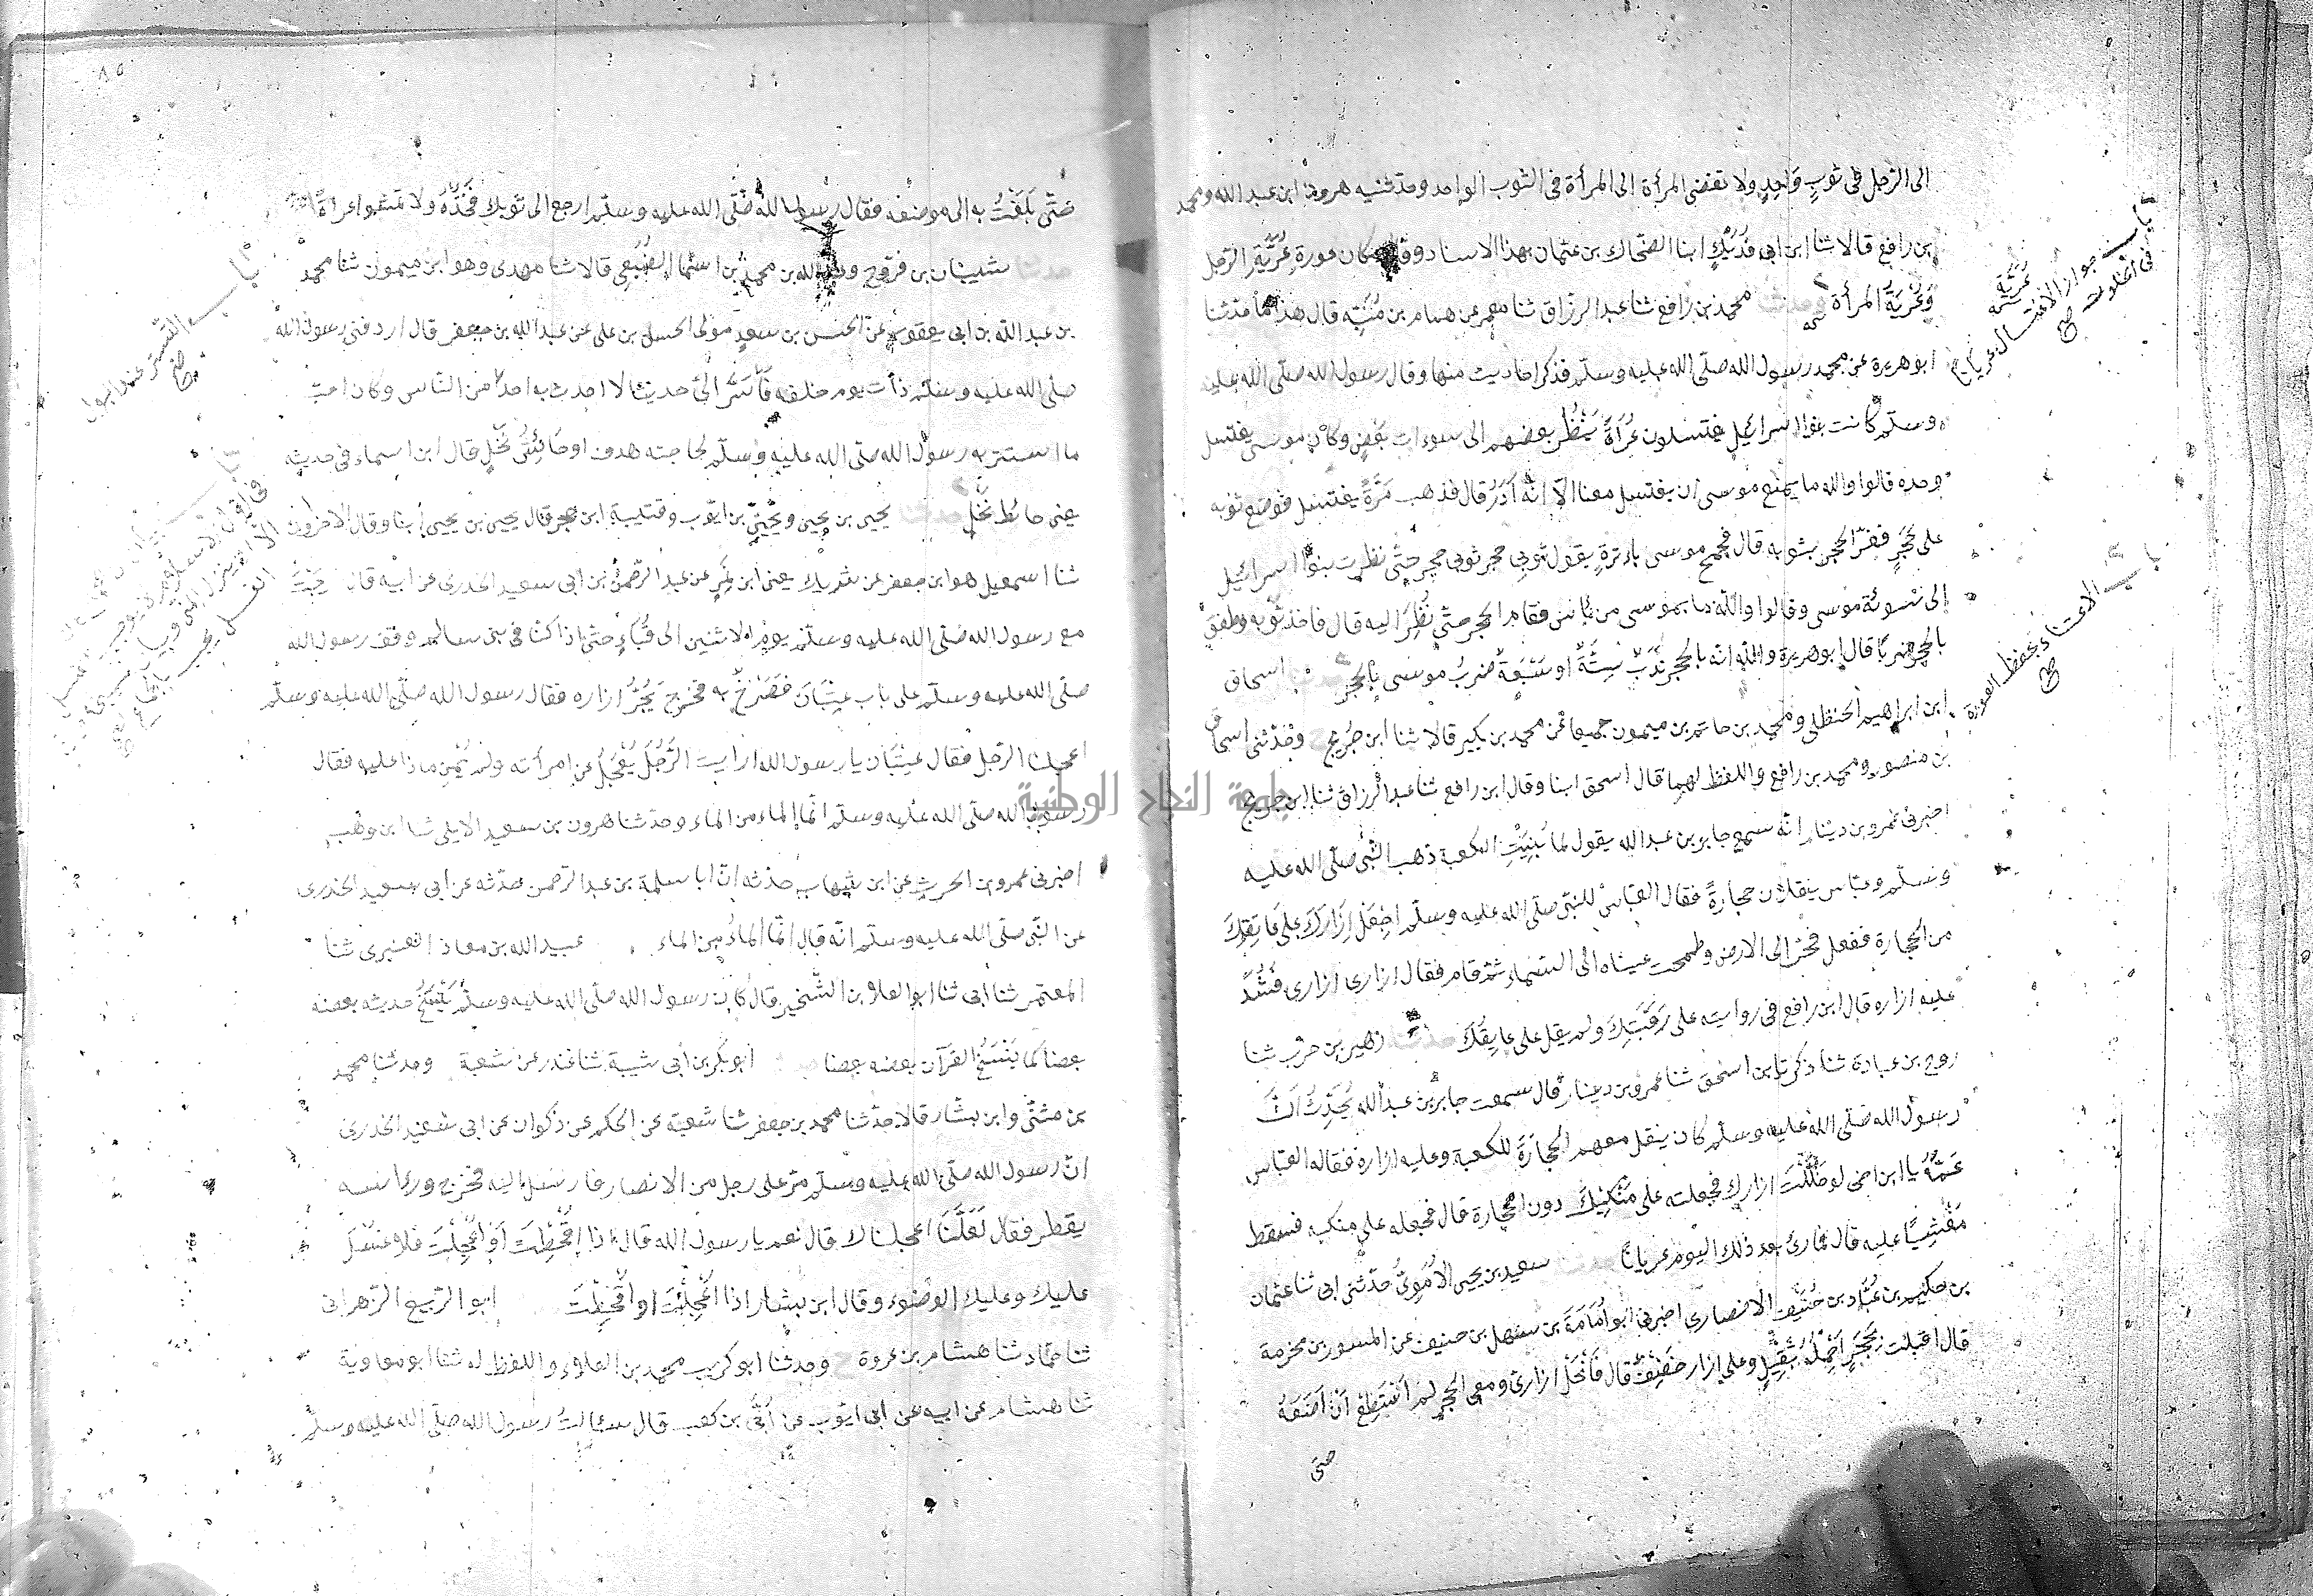 الى الرّجل فى ثوبٍ وَاحِدٍ ولا تفضى المرأة الى المرأة فى الثوب الواحد وحدثنيه هرون ابن عبد الله ومحمد
بن رافع قالا ثنا ابن ابى فُدَيْكٍ ابنا الضحّاك بن عثمان بهذا الاسناد وقالا مكان عورة عُرْيَةِ الرّجل
وَعُرْيَةُ المرأة وحدثنا محمد بن رافع ثنا عبد الرزّاق ثنا معمر عن همام بن مُنَبِّه قال هذا ما حدثنا
ابو هريرة عن محمد رسول الله صلّى الله عليه وسلّم فذكر احاديث منها وقال رسول الله صلّى الله عليه
وسلّم كانت بنوا اسرائيل يغتسلون عُرَاةً يَنْظُرُ بعضهم الى سوءات بَعْضٍ وكان موسى يغتسل
وحده فالوا والله ما يمنع موسى ان يغتسل معنا الّا انّه آدَرُ قال فذهب مَرَّةً يغتسل فوضع ثوبه
على حَجَرٍ ففرّ الحجر بثوبه قال فجمح موسى باِثرِهِ يقول ثوبى حجر ثوبى حجر حتّى نظرت بنوا اسرائيل
الى سَوءة موسى وقالوا والله ما بموسى من بَأس فقام الحجر حتّى نُظِرَ اليه قال فاخذ ثوبه وطفق
بالحجر ضربًا قال ابو هريرة والله انه بالحجر نَدَبٌ سِتَّةٌ او سَبْعَةٌ ضربُ موسى بالحجر اسحاق
ابن ابراهيم الحنظلى ومحمد بن حاتم بن ميمون جميعا عن محمد بن بكير قالا ثنا ابن جُرَيج وحَدّثنى اسحاق
بن منصور ومحمد بن رافع واللفظ لهما قال اسحق ابنا وقال ابن رافع ثنا عبد الرزاق ثنا ابن جريج
اخبرنى عمرو بن دينار انّه سمع جابر بن عبد الله يقول لما بُنِيَتِ الكعبة ذهب النّبى صلّى الله عليه
وسلّم وعبّاس ينقلان حجارةً فقال العبّاس للنبّى صلّى الله عليه وسلّم اجْعَل اِزَارَكَ على عَاتِقِكَ
من الحجارة ففعل فخرّ الى الارض وطمحت عيناه الى السّماء ثمّ قام فقال ازارى ازارى فَشُدَّ
عليه ازاره قال ابن رافع فى روايته على رَقَبَتِكَ ولم يقل على عاتِقِكَ حدثنا زهير بن حَرْب ثنا
روح بن عبادة ثنا ذكريّا بن اسحق ثنا عمرو بن دينار قال سمعت جابر بن عبد الله يُحَدِّثُ انَّ
رسول الله صَلّى الله عليه وسلّم كان ينقل معهم الحِجَارَةَ للكعبة وعليه ازاره فقال له العبّاس
عَمُّهُ يا ابن اخى لو حَلَلْتَ ازارك فجعلته على مَنْكِبِكَ دون الحجارة قال فحله فجعله على منكبه فسقط
مَغْشِيًّا عليه قال فما رُئ بعد ذلك اليوم عريانًا حدثنا سعيد بن يحيى الاُمَوِىُّ حدّثنى ابى ثنا عثمان
بن حكيم بن عبّاد بن حُنَيْفٍ الانصارى اخبرنى ابو اُمَامَةَ بن سهل بن حنيف عن المسور بن مخرمة
قال اقبلت بِحَجَرٍ اَحْمِلُهُ ثَقِيْلٍ وعلى ازار خَفِيفٌ قال فَانْحَلّ ازارى ومعى الحجر لم اَسْتَطِعْ اَنْ اَضَعَهُ
حتى
باب جواز الاغتسال عريانا
فى الخلوت صح
عُرْيَةِ
باب الاعتناء بحفظ العورة
صح
٨٥
حَتّى بَلَغْتُ به الى موضعه فقال رسول الله صَلّى الله عليه وسلّم ارجع الى ثوبك فَخُذْهُ ولا تمشوا عراةً
حدثنا شيبان بن فرّوخ وعبد الله بن محمد بن اسماء الضُبَعِى قالا ثنا مهدى وهو ابن ميمون ثنا محمد
بن عبد الله بن ابى يعقوب عن الحسن بن سعدٍ مولى الحسن بن على عن عبد الله بن جعفر قال اردفنى رسول الله
صلّى الله عليه وسلّم ذات يوم خلفه فَاَسَرَّ الىّ حديثا لا احدث به احدًا من النّاس وكان احبّ
ما استتر به رسول الله صلّى الله عليه وسلّم لحاجته هدف او حَائِشُ نَخْلٍ قال ابن اسماء فى حديثه
يعنى حائط نَخْلٍ حدثنا يحيى بن يحيى ويَحْيَى بن ايّوب وقتيبة ابن حجر قال يحيى بن يحيى ابنا وقال الآخرون
ثنا اسمعيل هو ابن جعفر عن شريك يعنى ابن نَمِرٍ عن عبد الرّحمن بن ابى سعيد الخدرى عن ابيه قال خَرَجْتُ
مع رسول الله صَلى الله عليه وسلّم يوم الاثنين الى قُبَاءٍ حتّى اذا كنّا فى بنى سالم وقف رسول الله
صلّى الله عليه وسلّم على باب عِتْبَانَ فَصَرَخَ به فخرج يَجُرُّ ازاره فقال رسول الله صلّى الله عليه وسلّم
اعجلنا الرّجل فقال عِتْبَان يا رسول الله ارايت الرَّجُلَ يُعْجَلُ عن امرأته ولم يُمْنِ ماذا عليه فقال
رسول الله صلّى الله عليه وسلّم انّما الماء من الماء وحدثنا هرون بن سعيد الايلى ثنا ابن وهب
اخبرنى عمرو بن الحرث عن ابن شهاب حدثه انّ ابا سلمة بن عبد الرّحمن حدّثه عن ابى سعيد الخدرى
عن النّبى صلّى الله عليه وسلّم انّه قال انّما الماءُ مِن الماء عبيد الله بن معاذ العنبرى ثنا
المعتمر ثنا ابى ثنا ابو العلاء بن الشّخّير قال كان رسول الله صلّى الله عليه وسلّم يَنْسَخُ حديثه بعضه
بعضا كما يَنْسَخُ القرآن بعضه بعضا ابو بكر بن ابى شيبة ثنا غندر عن شعبة وحدثنا محمد
بن مثنّى وابن بشّار قالا حدّثنا محمد بن جعفر ثنا شعبة عن الحكم عن ذكوان عن ابى سعيد الخدرى
انّ رسول الله صلّى الله عليه وسلّم مرّ على رجل من الانصار فارسل اليه فخرج وراسه
يقطر فقال لَعَلَّنَا اعجلناك قال نعم يا رسول الله قال اذا اُعْجِلْتَ اَوْ اُقْحِطْتَ فلا غُسْلَ
عليك وعليك الوضوء وقال ابن بشار اذا اُعْجِلْتَ او اُقْحِطْتَ ابو الرّبيع الزّهرانى
ثنا حمّاد ثنا هشام بن عروة ح وحدثنا ابو كريب محمد بن العلاء واللفظ له ثنا ابو معاوية
ثنا هشام عن ابيه عن ابى ايّوب عن اُبَىّ بن كعب قال سألتُ رسول الله صلّى الله عليه وسلّم
باب التستر عند البول
صح
جامعة النجاح الوطنية